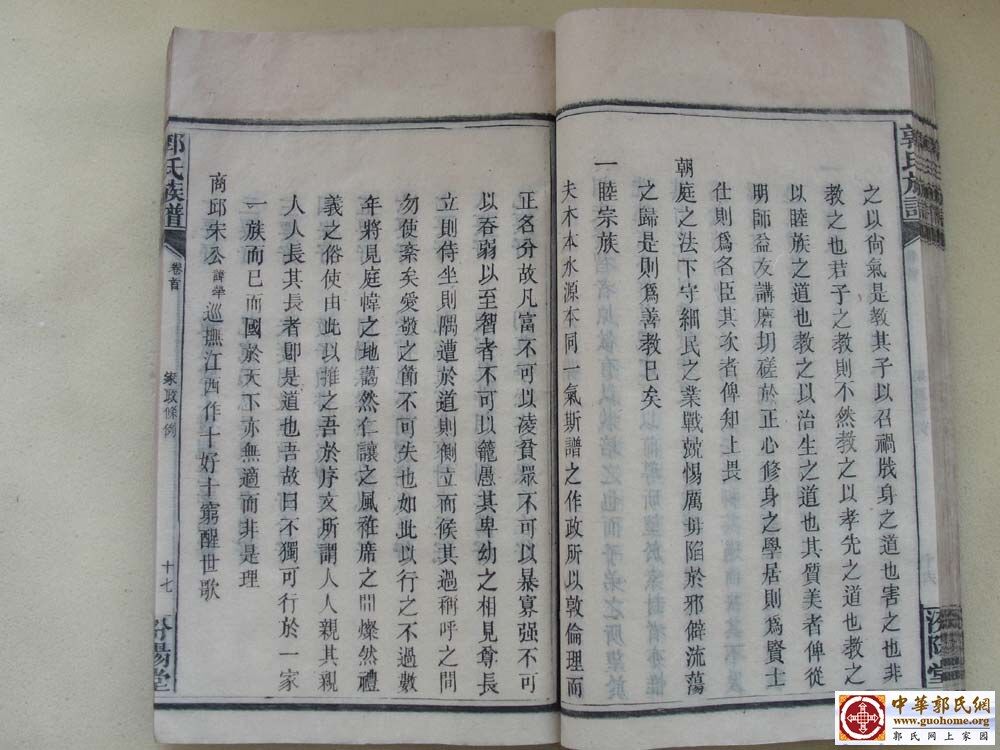 郭氏族譜
之以尙氣是教其子以召禍戕身之道也害之也非
教之也君子之教則不然教之以孝先之道也教之
以睦族之道也教之以治生之道也其質美者俾從
明師益友講磨切磋於正心修身之學居則爲賢士
仕則爲名臣其次者俾知上畏
朝庭之法下守細民之業戰兢惕厲毋陷於邪僻流蕩
之歸是則爲善教已矣
一睦宗族
夫木本水源本同一氣斯譜之作政所以敦倫理而
汾陽堂
正名分故凡富不可以凌貧眾不可以暴寡强不可
以吞弱以至智者不可以籠愚其卑幼之相見尊長
立則侍坐則隅遭於道則側立而候其過稱呼之間
勿使紊矣愛敬之節不可失也如此以行之不過數
年將見庭幃之地藹然仁讓之風袵席之間燦然禮
義之俗使由此以推之吾於序文所謂人人親其親
人人長其長者卽是道也吾故曰不獨可行於一家
一族而已而國於天下亦無適而非是理
商邱宋公諱犖巡撫江西作十好十窮醒世歌
郭氏族譜
卷首
家政條例
十七
汾陽堂
中華郭氏網
www.guohome.org
郭氏網上家園